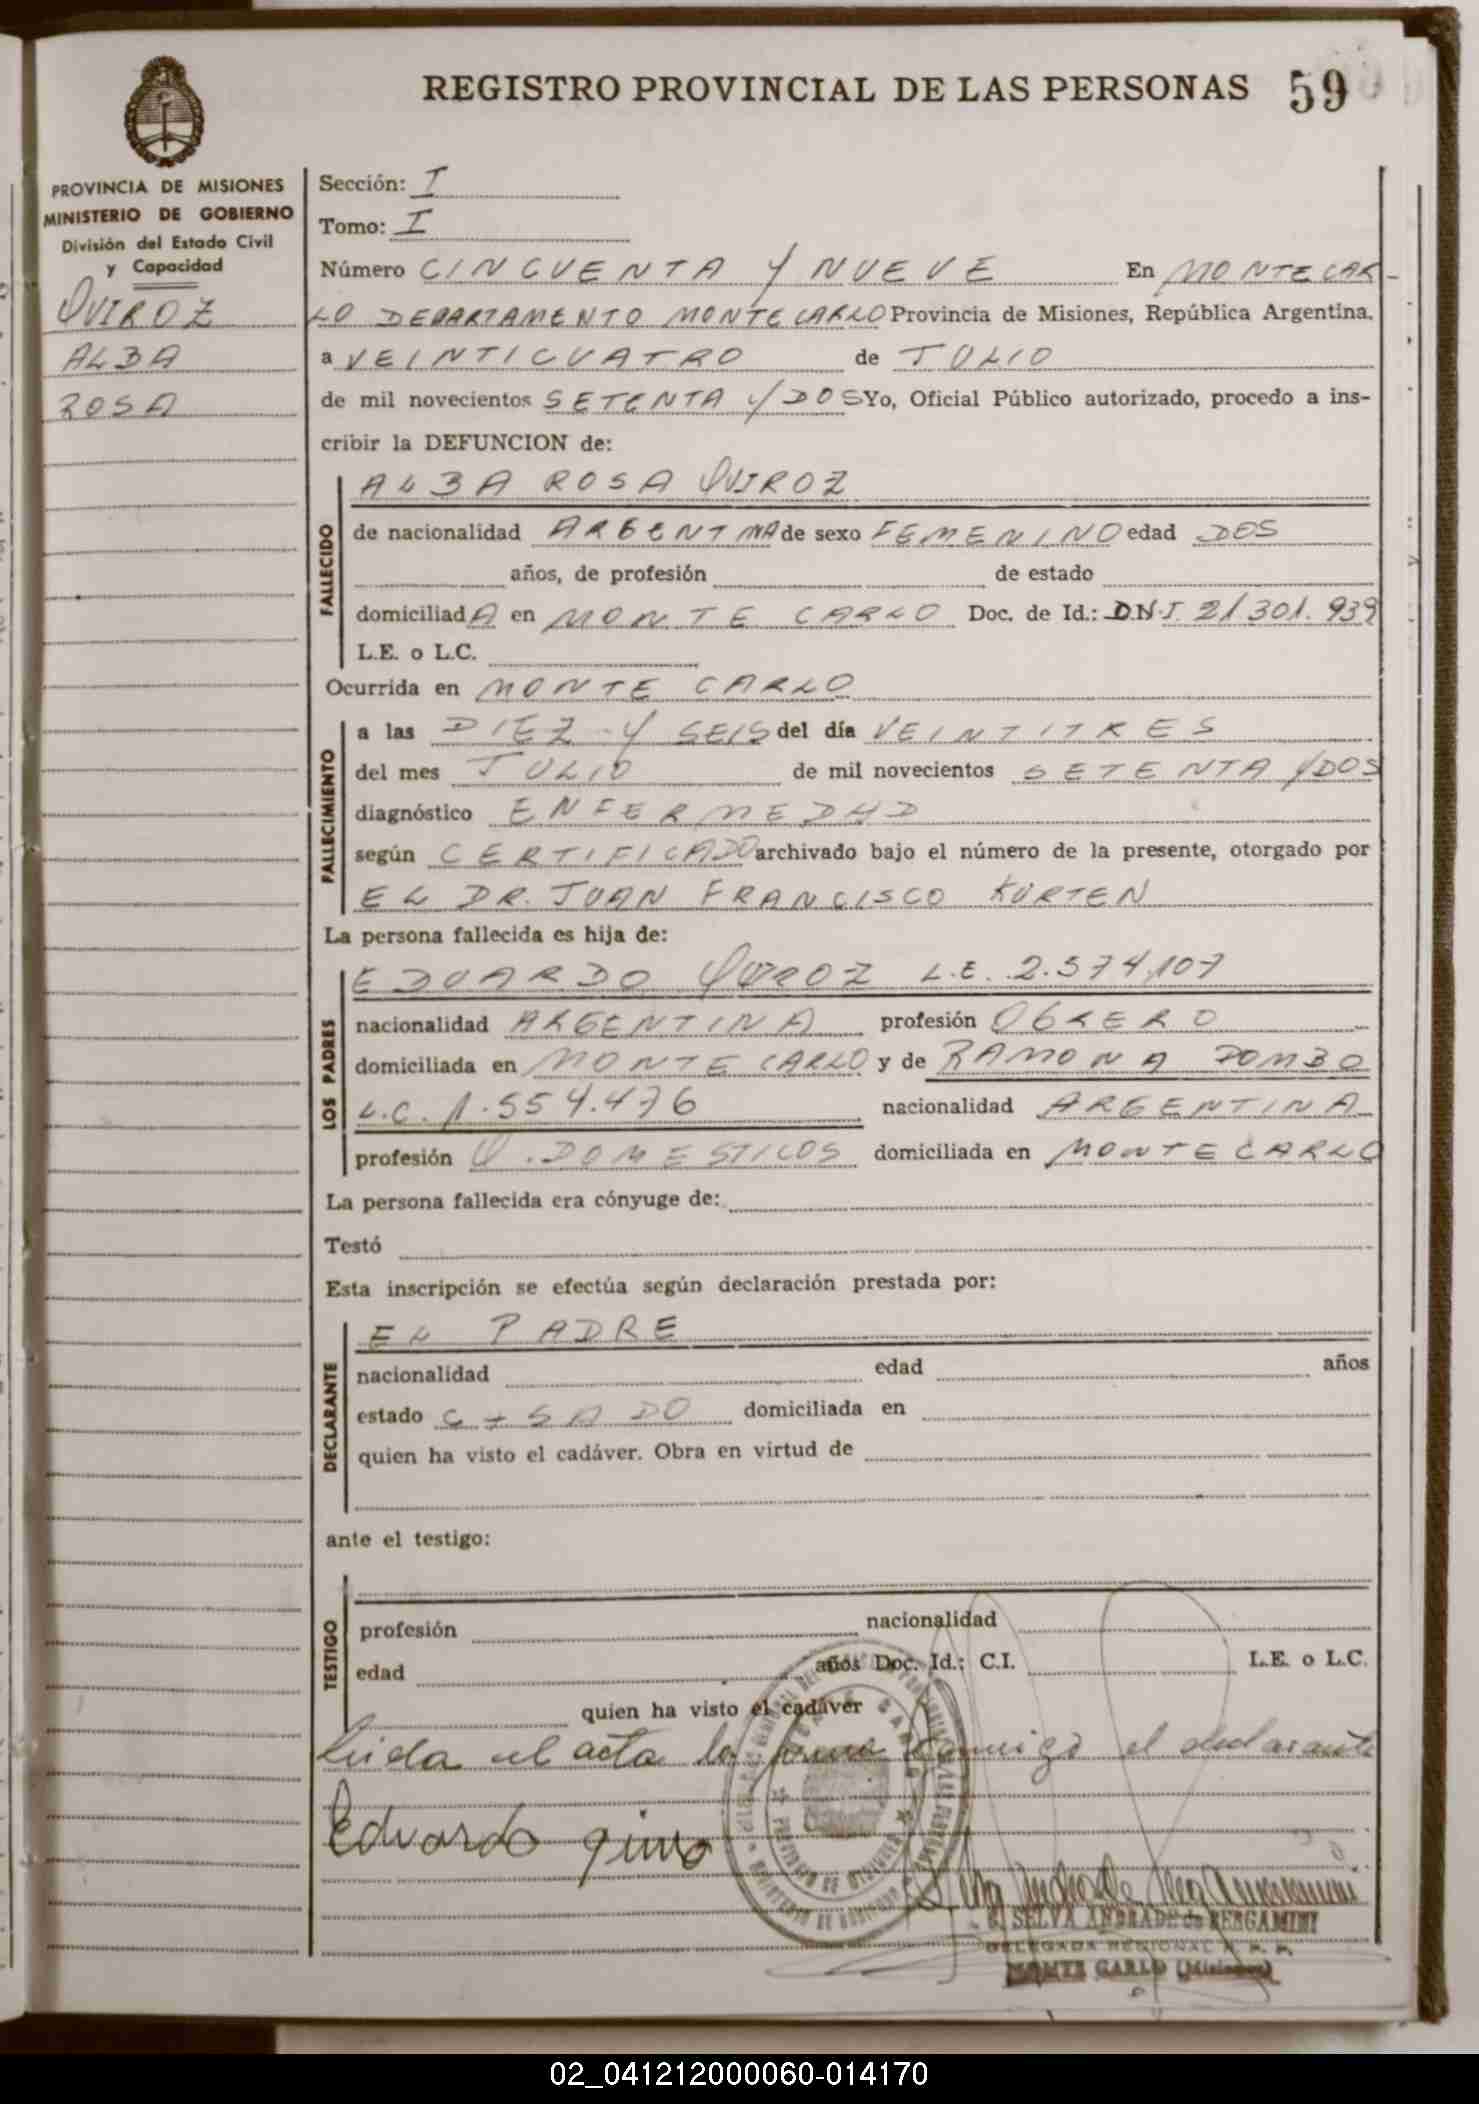 REGISTRO PROVINCIAL DE LAS PERSONAS 59
PROVINCIA DE MISIONES
MINISTERIO DE GOBIERNO
División del Estado Civil
y Capacidad
QUIROZ
ALBA
ROSA
Sección: I
Tomo: I
Número CINCUENTA Y NUEVE En MONTECAR-
LO DEPARTAMENTO MONTECARLO Provincia de Misiones, República Argentina,
a VEINTICUATRO de JULIO
de mil novecientos SETENTA Y DOS Yo, Oficial Público autorizado, procedo a ins-
cribir la DEFUNCION de:
FALLECIDO
ALBA ROSA QUIROZ
de nacionalidad ARGENTINA de sexo FEMENINO edad DOS
años, de profesión de estado
domiciliadA en MONTE CARLO Doc. de Id.: D.N.I. 21.301.939
L.E. o L.C.
Ocurrida en MONTE CARLO
FALLECIMIENTO
a las DIEZ Y SEIS del día VEINTITRES
del mes JULIO de mil novecientos SETENTA Y DOS
diagnóstico ENFERMEDAD
según CERTIFICADO archivado bajo el número de la presente, otorgado por
EL DR. JUAN FRANCISCO KURTEN
La persona fallecida es hija de:
LOS PADRES
EDUARDO QUIROZ L.E. 2.574.107
nacionalidad ARGENTINA profesión OBRERO
domiciliada en MONTE CARLO y de RAMONA POMBO
L.C. 1.554.476 nacionalidad ARGENTINA
profesión Q. DOMESTICOS domiciliada en MONTECARLO
La persona fallecida era cónyuge de:
Testó
Esta inscripción se efectúa según declaración prestada por:
DECLARANTE
EL PADRE
nacionalidad edad años
estado CASADO domiciliada en
quien ha visto el cadáver. Obra en virtud de
ante el testigo:
TESTIGO
profesión nacionalidad
edad años Doc. Id.: C.I. L.E. o L.C.
quien ha visto el cadáver
Leida el acta la firma conmigo el declarante
Eduardo
S. SELVA ANDRADE de BERGAMINI
DELEGADA REGIONAL R. P. P.
MONTE CARLO (Misiones)
02_041212000060-014170